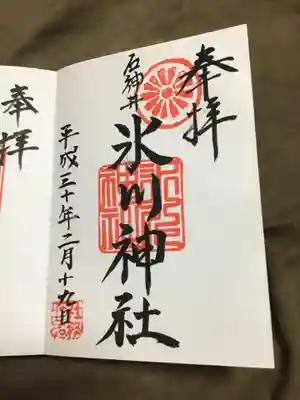 奉拝
石神井
氷川神社
平成三十年二月十九日
奉拝